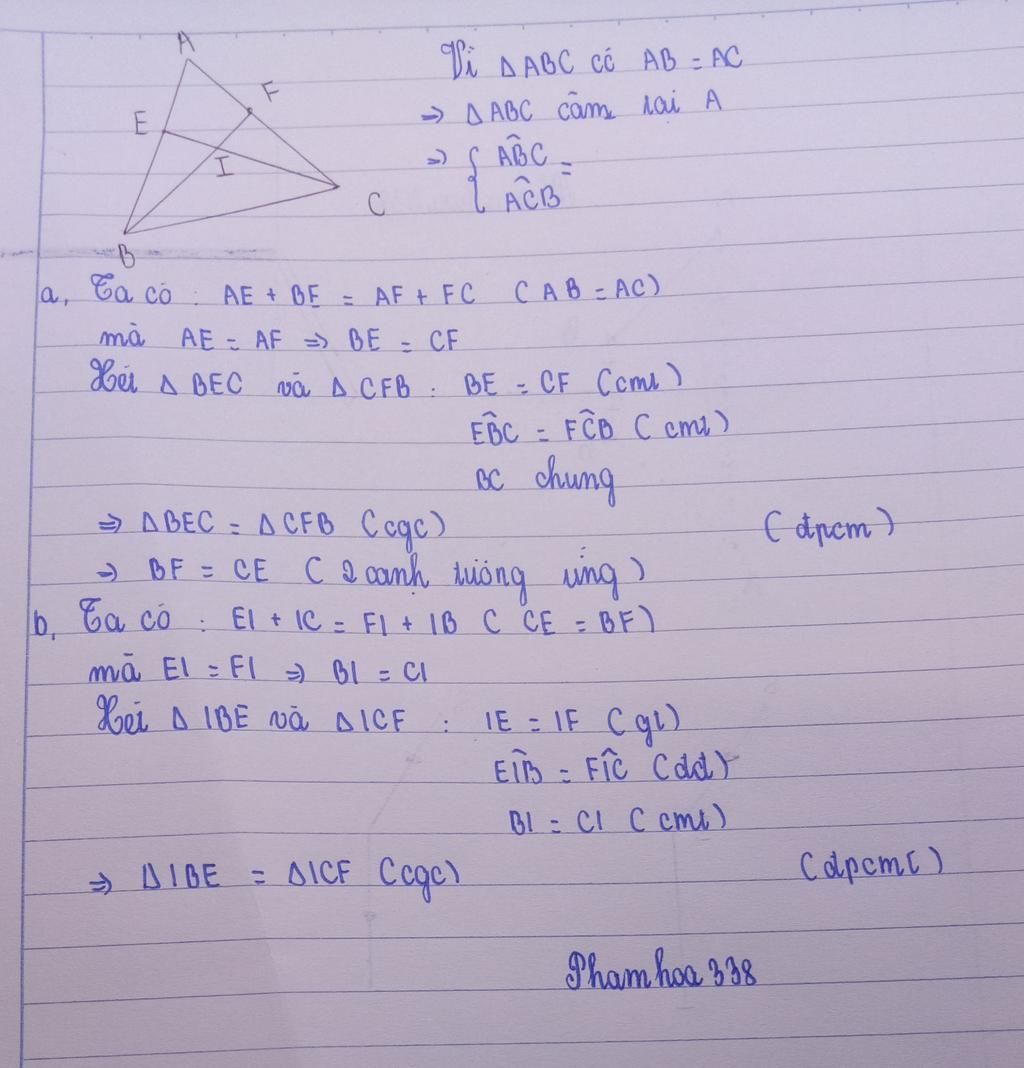 A
F
E
I
C
B
Vì ΔABC có AB = AC
=> ΔABC cân tại A
=> { AB̂C =
AĈB
a, Ta có : AE + BE = AF + FC ( AB = AC)
mà AE = AF => BE = CF
Xét Δ BEC và Δ CFB : BE = CF (cmt)
EB̂C = FĈB ( cmt)
BC chung
=> ΔBEC = ΔCFB (cgc) (đpcm)
=> BF = CE ( 2 cạnh tương ứng )
b, Ta có : EI + IC = FI + IB ( CE = BF)
mà EI = FI => BI = CI
Xét Δ IBE và ΔICF : IE = IF (gt)
EÎB = FÎC (đđ)
BI = CI ( cmt)
=> ΔIBE = ΔICF (cgc) (đpcm)
Phamhoa338